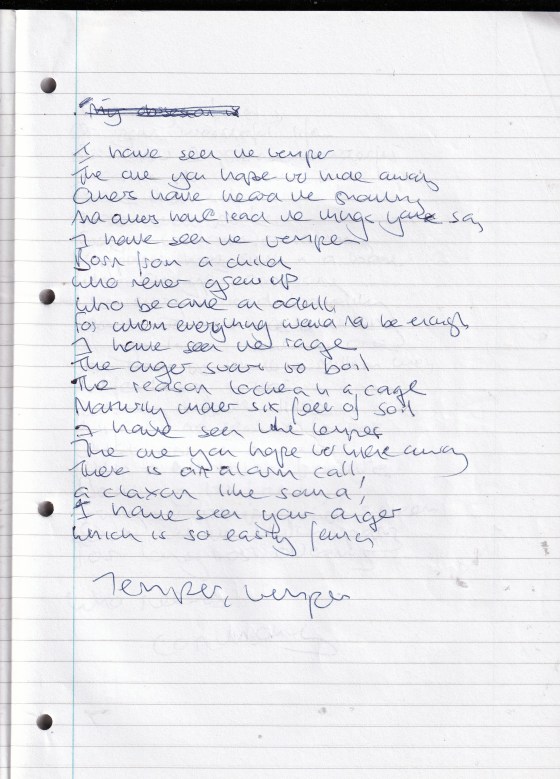 My obsession is
I have seen the temper
The one you hope to hide away
Others have heard the shouting
And others have read the things you say
I have seen the temper
Born from a child
who never grew up
who became an adult
for whom everything would not be enough
I have seen the rage
The anger starts to boil
The reason locked in a cage
Maturity under six feet of soil
I have seen the temper
The one you hope to hide away
There is an alarm call,
a claxon like sound,
I have seen your anger
which is so easily found
Temper, temper